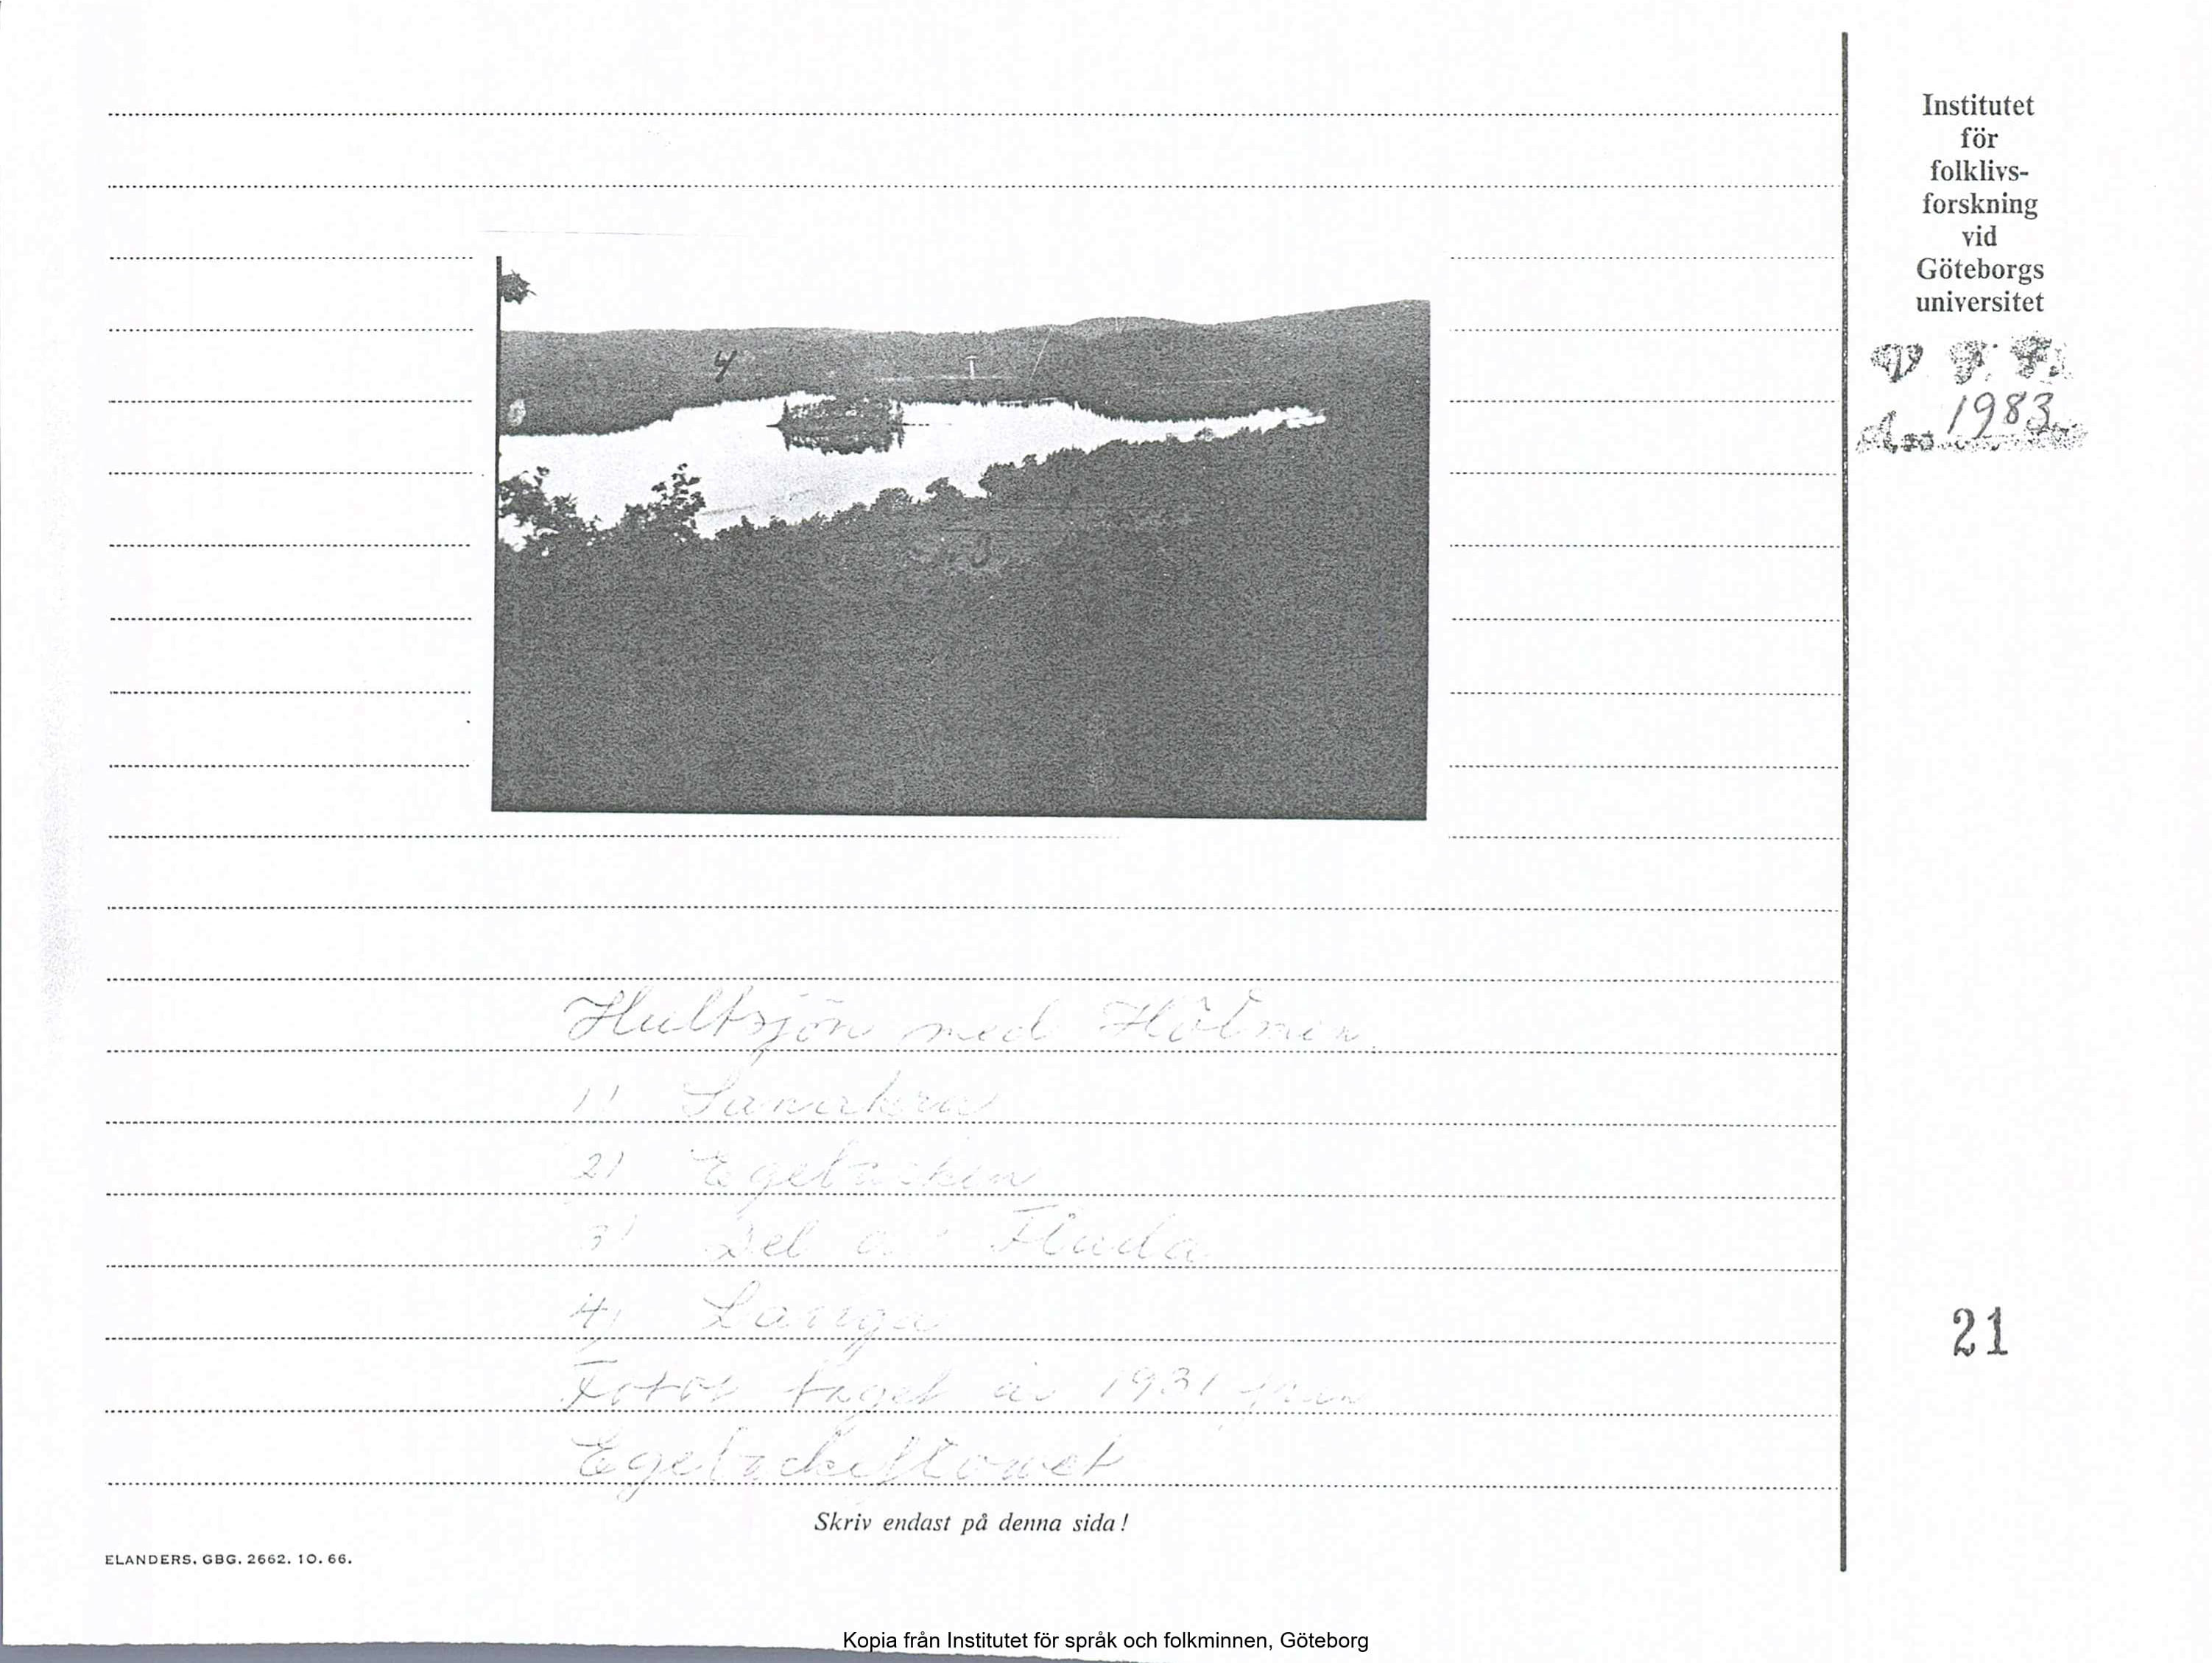 Institutet
för
folklivs-
forskning
vid
Göteborgs
universitet
1983
4
3
Hultsjön med Holmen
1)
2) Egebacken
3) Del av Fluda
4) Langa
Fotot taget år 1931 från
21
Skriv endast på denna sida!
ELANDERS. GBG. 2662. 10. 66.
Kopia från Institutet för språk och folkminnen, Göteborg